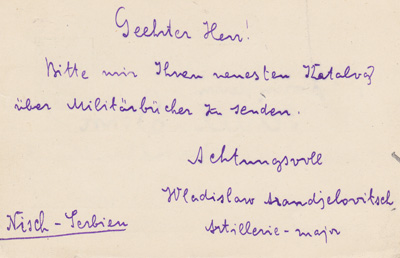 Geehrter Herr!
Bitte mir Ihren neuesten Katalog
über Militärbücher zu senden.
Achtungsvoll
Wladislaw Arandjelovitsch
Nisch - Serbien
Artillerie - major